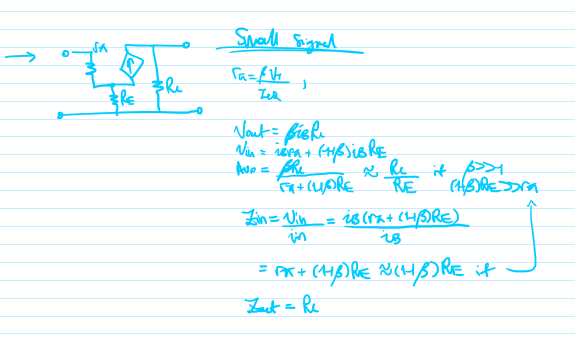 Small Signal
rπ
RE
RL
rπ = βVT / ICQ ,
Vout = βiBRL
Vin = iBrπ + (1+β)iBRE
AVO = βRL / rπ+(1+β)RE ≈ RL / RE if β>>1
(1+β)RE>>rπ
Zin = Vin / iin = iB(rπ+(1+β)RE) / iB
= rπ + (1+β)RE ≈ (1+β)RE if
Zout = RL